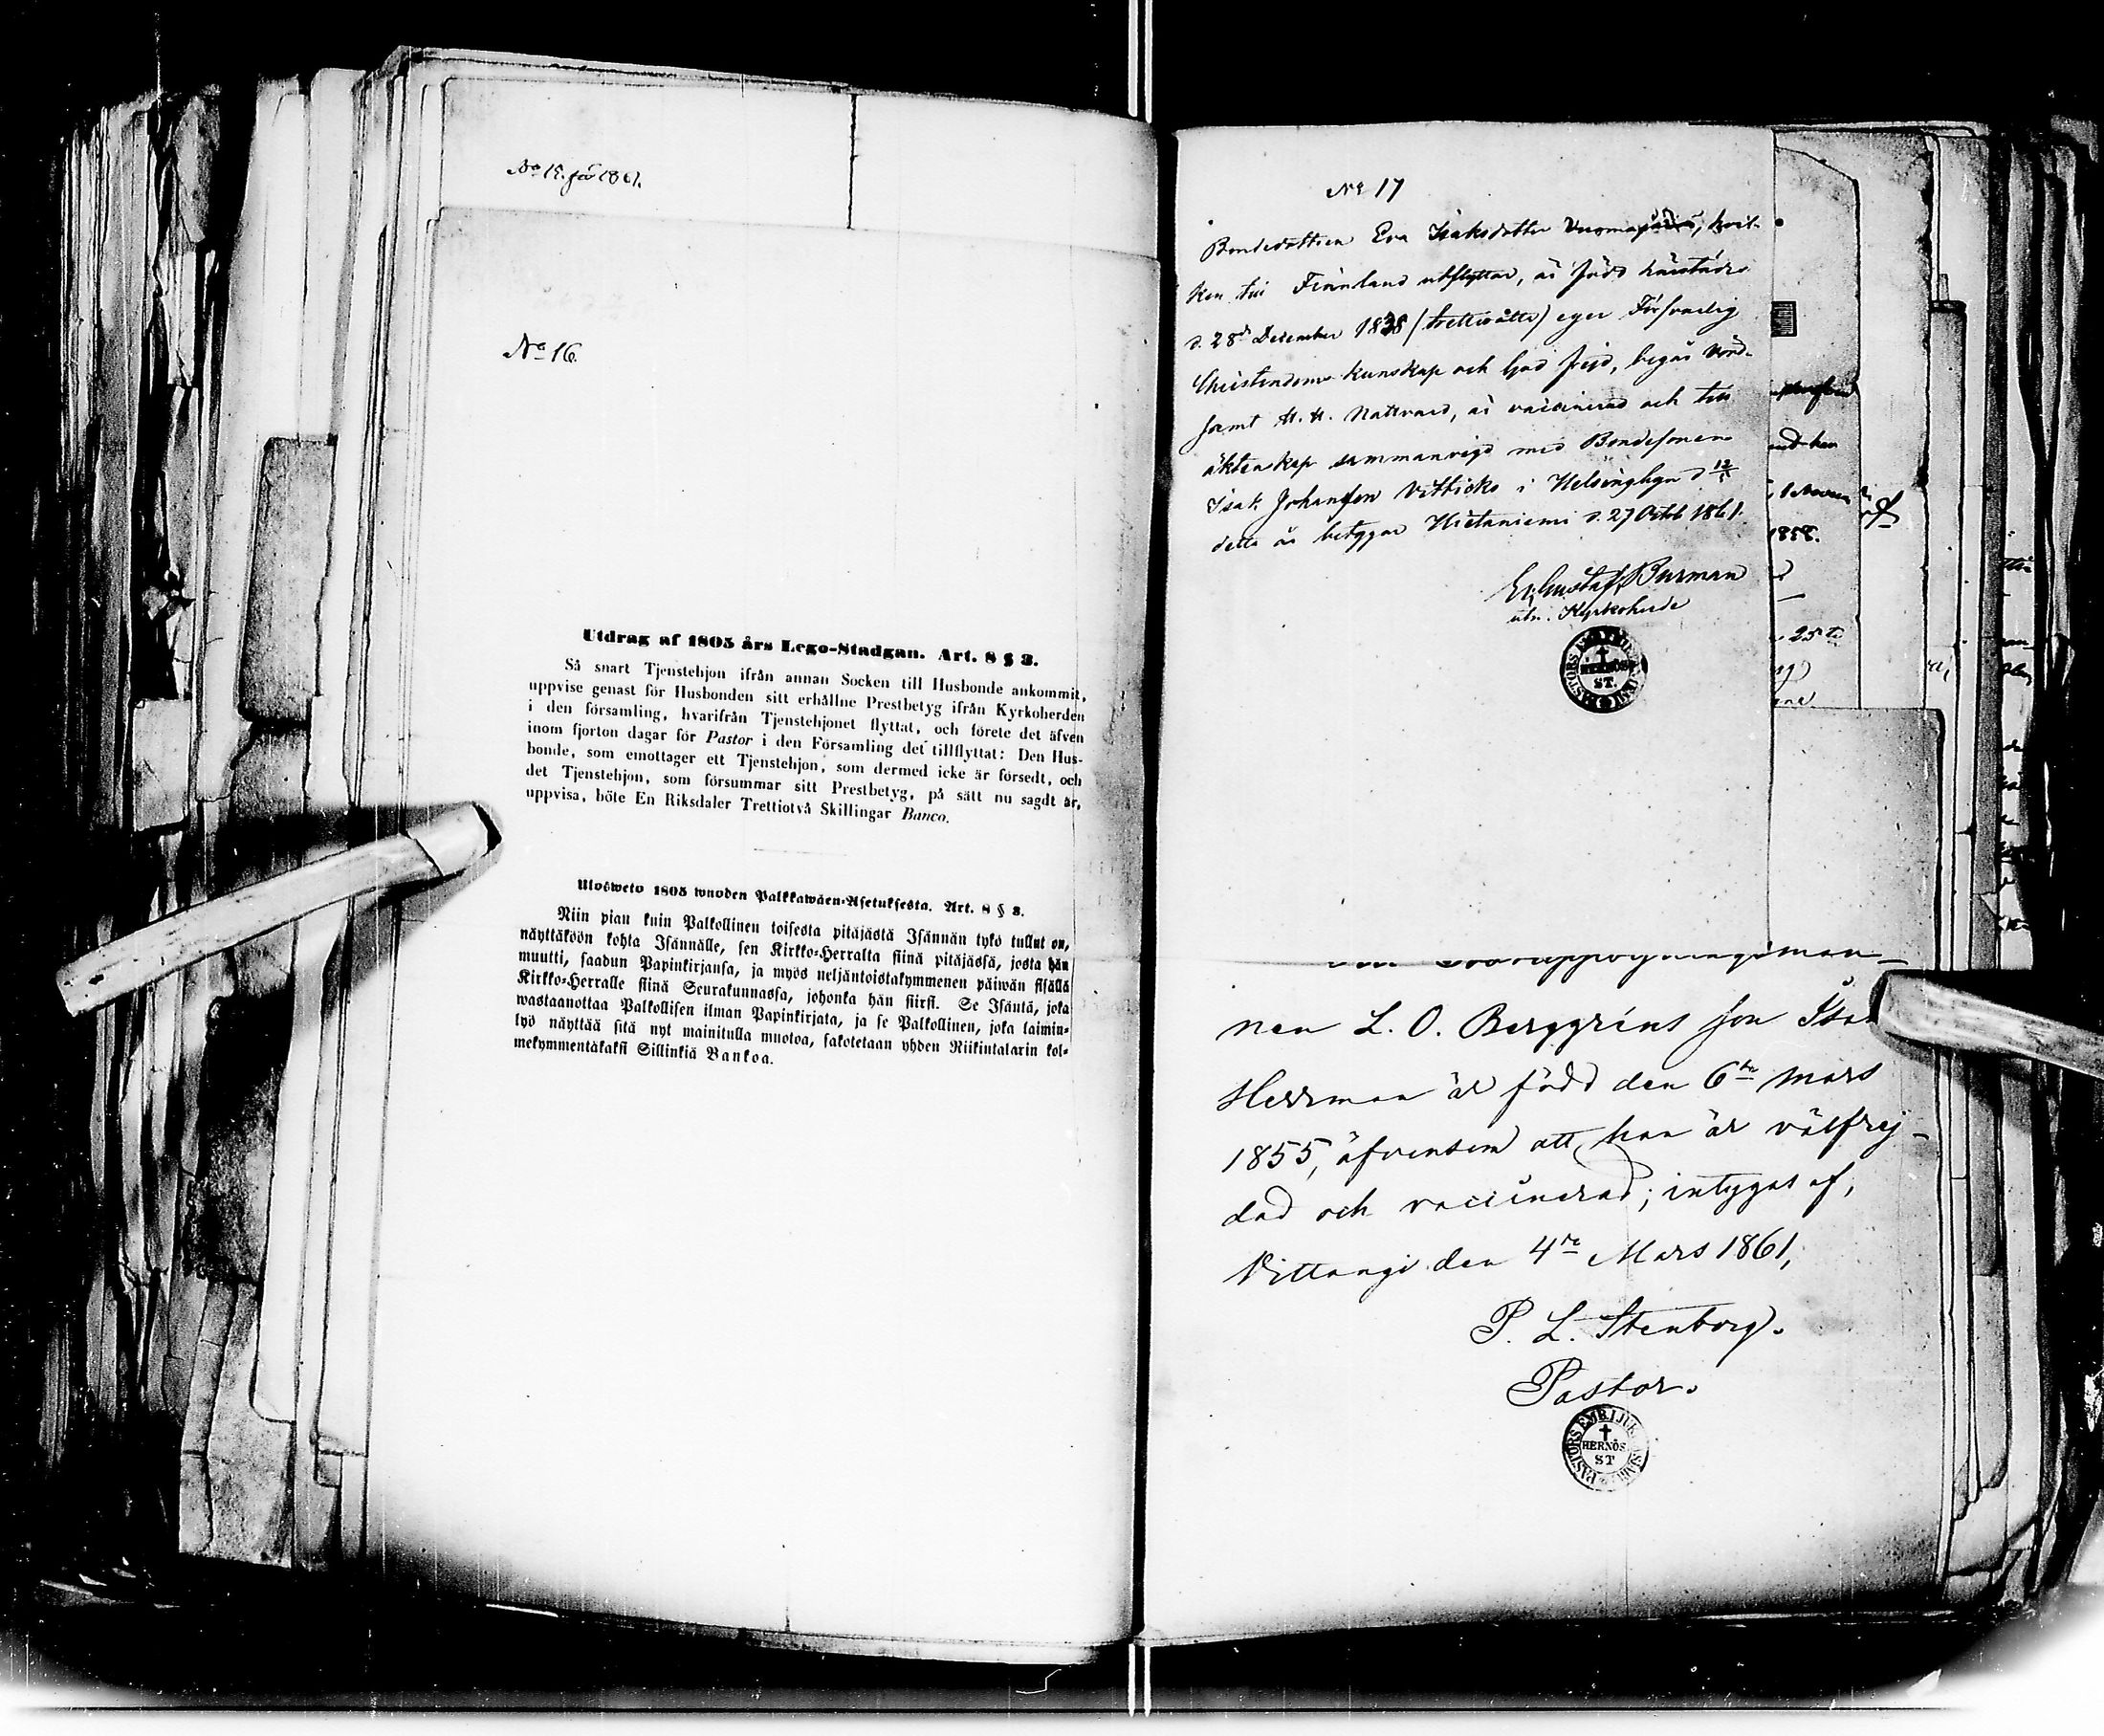 No 15. för 1861.
No 16.
Utdrag af 1805 års Lego-Stadgan. Art. 8 § 3.
Så snart Tjenstehjon ifrån annan Socken till Husbonde ankommit,
uppvise genast för Husbonden sitt erhållne Prestbetyg ifrån Kyrkoherden
i den församling, hvarifrån Tjenstehjonet flyttat, och förete det äfven
inom fjorton dagar för Pastor i den Församling det tillflyttat: Den Hus-
bonde, som emottager ett Tjenstehjon, som dermed icke är försedt, och
det Tjenstehjon, som försummar sitt Prestbetyg, på sätt nu sagdt är,
uppvisa, böte En Riksdaler Trettiotvå Skillingar Banco.
Ulosweto 1805 wuoden Palkkawäen-Asetuksesta. Art. 8 § 3.
Niin pian kuin Palkollinen toisesta pitäjästä Isännän tykö tullut on,
näyttäköön kohta Isännälle, sen Kirkko-Herralta siinä pitäjässä, josta hän
muutti, saadun Papinkirjansa, ja myös neljäntoistakymmenen päiwän sisällä
Kirkko-Herralle siinä Seurakunnassa, johonka hän siirsi. Se Isäntä, joka
wastaanottaa Palkollisen ilman Papinkirjata, ja se Palkollinen, joka laimin-
lyö näyttää sitä nyt mainitulla muotoa, sakotetaan yhden Riikintalarin kol-
mekymmentäkaksi Sillinkiä Bankoa.
No 17
Bondedottren Eva Isaksdotter hvil-
ken till Finnland utflyttar, är född härstädes
d. 28de December 1838 (trettioåtta) eger Försvarlig
Christendoms kunskap och god frejd, begår Nörd-
samt H. H. Nattvard, är vaccinerad och till
äktenskap sammanvigd med Bondesonen
Isak Johansson Vittikko i Helsingbyn d 12/5
detta år betygar Hietaniemi d. 27 Octob 1861.
Er. Gustaf Burman
utn. Kyrkoherde
HERNÖS ST.
nen L. O. Berggréns son Isak
Herrman är född den 6te Mars
1855, äfvensom att han är välfrej-
dad och vaccinerad; intygas af,
Vittangi den 4de Mars 1861,
P. L. Stenborg.
Pastor.
PASTORS EMB I JUK
HERNÖS
ST
1858.
25te